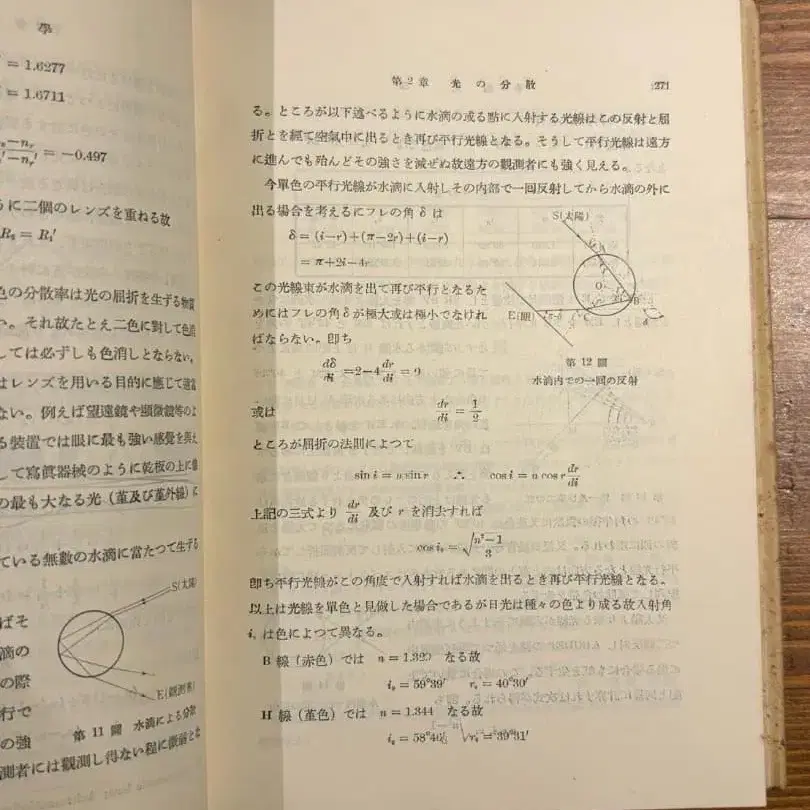 學
= 1.6277
= 1.6711
= −0.497
うに二個のレンズを重ねる故
R₂ = R₁′
色の分散率は光の屈折を生ずる物質
い。それ故たとえ二色に對して色消
しては必ずしも色消しとならない。
はレンズを用いる目的に應じて適當
ない。例えば望遠鏡や顯微鏡等のよ
る裝置では眼に最も強い感覺を與え
して寫眞器械のように乾板の上に
の最も大なる光(菫及び菫外線)に
ている無數の水滴に當たつて生ずる
S(太陽)
ばそ
滴の
の際
行で
の強
E(觀測者)
第 11 圖 水滴による分散
測者には觀測し得ない程に微弱とな
第2章 光の分散 271
る。ところが以下述べるように水滴の或る點に入射する光線はこの反射と屈
折とを經て空氣中に出るとき再び平行光線となる。そうして平行光線は遠方
に進んでも殆んどその強さを減ぜぬ故遠方の觀測者にも強く見える。
今單色の平行光線が水滴に入射しその内部で一回反射してから水滴の外に
出る場合を考えるにフレの角 δ は
δ = (i−r)+(π−2r)+(i−r)
= π+2i−4r
この光線束が水滴を出て再び平行となるた
めにはフレの角 δ が極大或は極小でなけれ
ばならない。卽ち
S(太陽)
O
B
C
E(眼)
第 12 圖
水滴内での一回の反射
dδ/di = 2−4 dr/di = 0
或は dr/di = 1/2
ところが屈折の法則によつて
sin i = n sin r ∴ cos i = n cos r dr/di
上記の三式より dr/di 及び r を消去すれば
cos i₀ = √((n²−1)/3)
卽ち平行光線がこの角度で入射すれば水滴を出るとき再び平行光線となる。
以上は光線を單色と見做した場合であるが日光は種々の色より成る故入射角
i₀ は色によつて異なる。
B 線(赤色)では n = 1.329 なる故
i₀ = 59°39′ r₀ = 40°30′
H 線(菫色)では n = 1.344 なる故
i₀ = 58°46′ r₀ = 39°31′